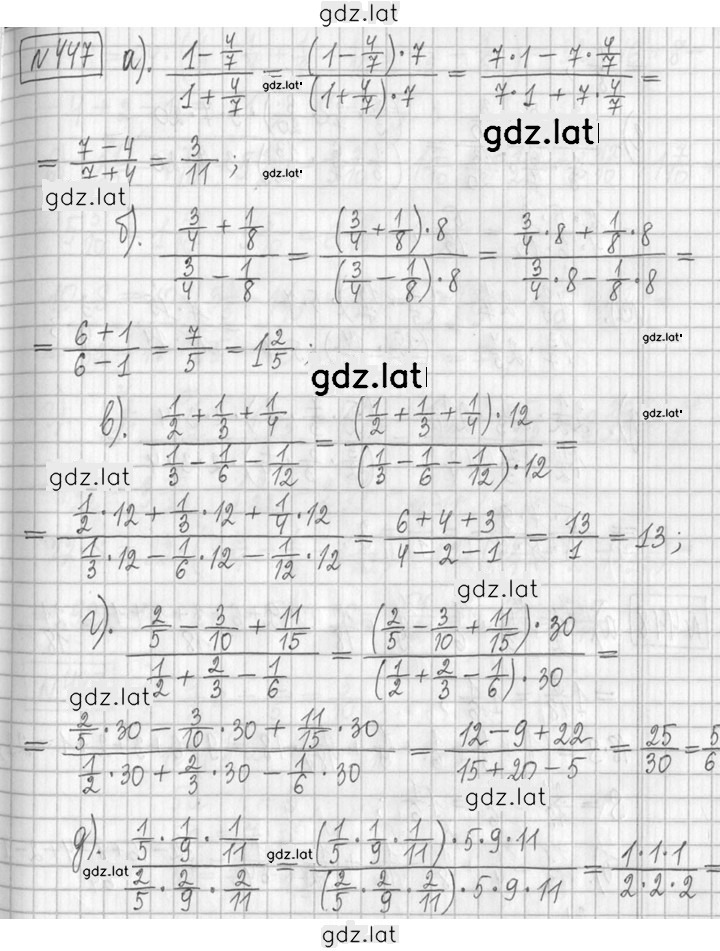 gdz.lat
№447 а). (1 - 4/7)/(1 + 4/7) = ((1 - 4/7)·7)/((1 + 4/7)·7) = (7·1 - 7·4/7)/(7·1 + 7·4/7) =
gdz.lat
gdz.lat
= (7 - 4)/(7 + 4) = 3/11 ;
gdz.lat
gdz.lat
б). (3/4 + 1/8)/(3/4 - 1/8) = ((3/4 + 1/8)·8)/((3/4 - 1/8)·8) = (3/4·8 + 1/8·8)/(3/4·8 - 1/8·8) =
= (6 + 1)/(6 - 1) = 7/5 = 1 2/5 ;
gdz.lat
gdz.lat
в). (1/2 + 1/3 + 1/4)/(1/3 - 1/6 - 1/12) = ((1/2 + 1/3 + 1/4)·12)/((1/3 - 1/6 - 1/12)·12) =
gdz.lat
gdz.lat
= (1/2·12 + 1/3·12 + 1/4·12)/(1/3·12 - 1/6·12 - 1/12·12) = (6 + 4 + 3)/(4 - 2 - 1) = 13/1 = 13 ;
gdz.lat
г). (2/5 - 3/10 + 11/15)/(1/2 + 2/3 - 1/6) = ((2/5 - 3/10 + 11/15)·30)/((1/2 + 2/3 - 1/6)·30) =
gdz.lat
= (2/5·30 - 3/10·30 + 11/15·30)/(1/2·30 + 2/3·30 - 1/6·30) = (12 - 9 + 22)/(15 + 20 - 5) = 25/30 = 5/6
gdz.lat
д). (1/5·1/9·1/11)/(2/5·2/9·2/11) = ((1/5·1/9·1/11)·5·9·11)/((2/5·2/9·2/11)·5·9·11) = (1·1·1)/(2·2·2) =
gdz.lat
gdz.lat
gdz.lat